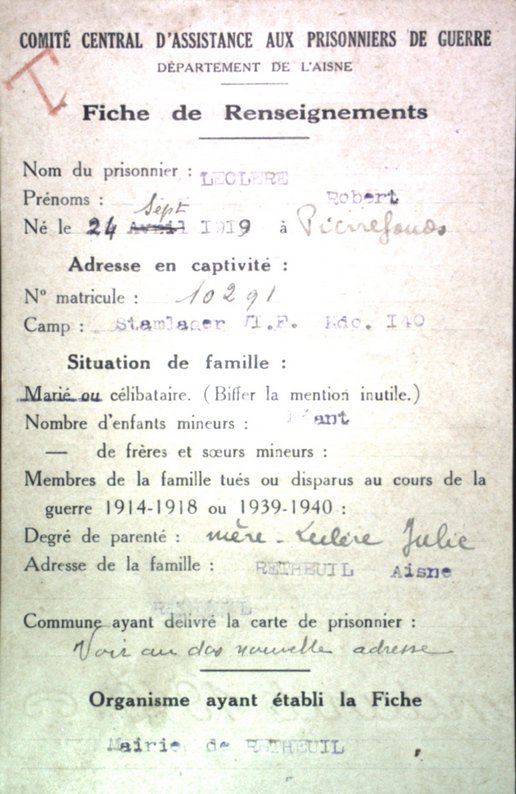 I
COMITÉ CENTRAL D'ASSISTANCE AUX PRISONNIERS DE GUERRE
DÉPARTEMENT DE L'AISNE
Fiche de Renseignements
Nom du prisonnier : LECLERE
Prénoms : Robert
Sept
Né le 24 Avril 1919 à Pierrefonds
Adresse en captivité :
N° matricule : 10291
Camp : Stamlager Kdo. I40
Situation de famille :
Marié ou célibataire. (Biffer la mention inutile.)
Nombre d'enfants mineurs : Néant
— de frères et sœurs mineurs :
Membres de la famille tués ou disparus au cours de la
guerre 1914-1918 ou 1939-1940 :
Degré de parenté : mère - Leclère Julie
Adresse de la famille : RETHEUIL Aisne
RETHEUIL
Commune ayant délivré la carte de prisonnier :
Voir au dos nouvelle adresse
Organisme ayant établi la Fiche
Mairie de RETHEUIL